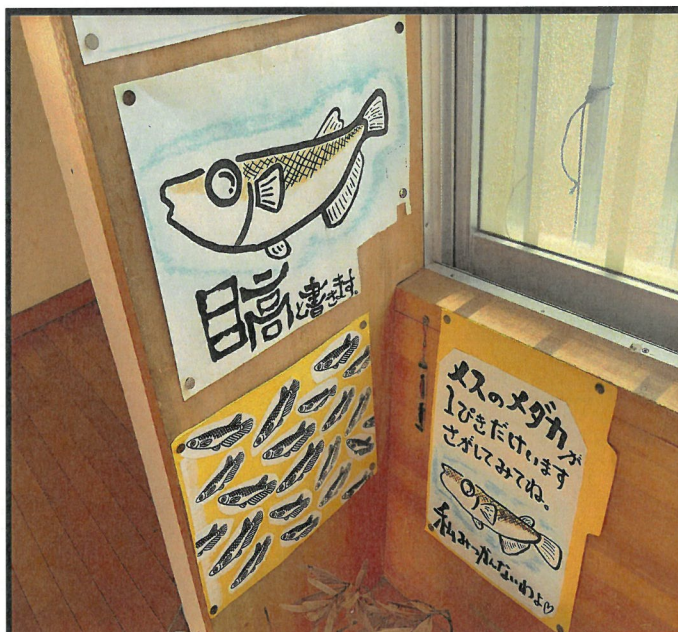 目高と書きます。
メスのメダカが
1ぴきだけいます
さがしてみてね。
私みっかんないわよ♡